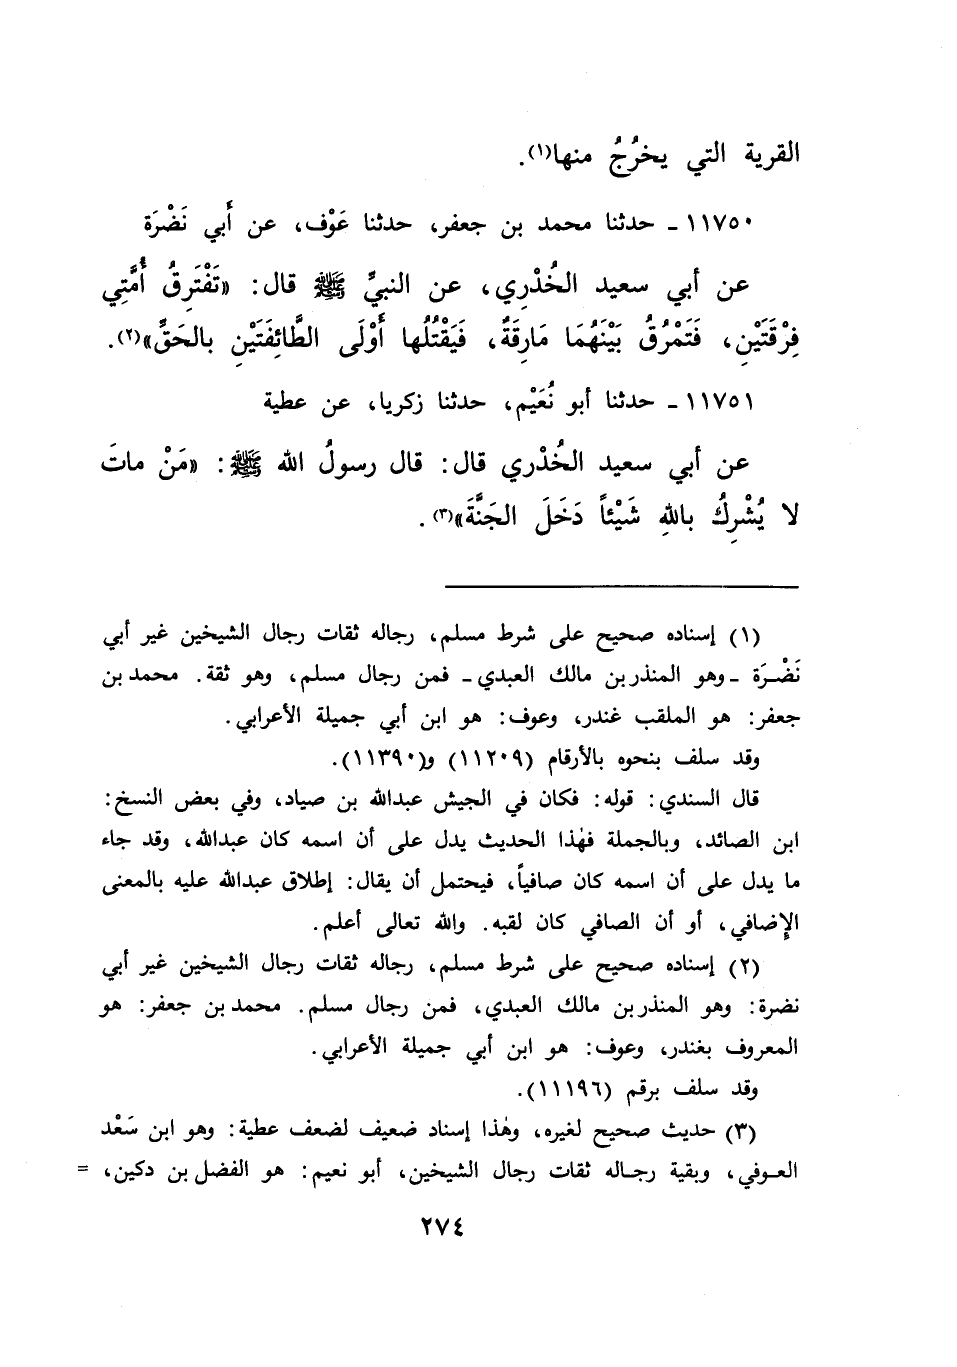 القرية التي يخرُجُ منها(١).
١١٧٥٠ ـ حدثنا محمد بن جعفر، حدثنا عَوْف، عن أَبي نَضْرَة
عن أبي سعيد الخُدْرِي، عن النبيِّ ﷺ قال: «تَفْتَرِقُ أُمَّتِي
فِرْقَتَيْنِ، فَتَمْرُقُ بَيْنَهُمَا مَارِقَةٌ، فَيَقْتُلُها أَوْلَى الطَّائِفَتَيْنِ بالحَقِّ»(٢).
١١٧٥١ ـ حدثنا أبو نُعَيْم، حدثنا زكريا، عن عطية
عن أبي سعيد الخُدْري قال: قال رسولُ الله ﷺ: «مَنْ ماتَ
لا يُشْرِكُ باللهِ شَيْئاً دَخَلَ الجَنَّةَ»(٣).
(١) إسناده صحيح على شرط مسلم، رجاله ثقات رجال الشيخين غير أبي
نَضْرَة ـ وهو المنذر بن مالك العبدي ـ فمن رجال مسلم، وهو ثقة. محمد بن
جعفر: هو الملقب غندر، وعوف: هو ابن أبي جميلة الأعرابي.
وقد سلف بنحوه بالأرقام (١١٢٠٩) و(١١٣٩٠).
قال السندي: قوله: فكان في الجيش عبدالله بن صياد، وفي بعض النسخ:
ابن الصائد، وبالجملة فهٰذا الحديث يدل على أن اسمه كان عبدالله، وقد جاء
ما يدل على أن اسمه كان صافياً، فيحتمل أن يقال: إطلاق عبدالله عليه بالمعنى
الإِضافي، أو أن الصافي كان لقبه. والله تعالى أعلم.
(٢) إسناده صحيح على شرط مسلم، رجاله ثقات رجال الشيخين غير أبي
نضرة: وهو المنذر بن مالك العبدي، فمن رجال مسلم. محمد بن جعفر: هو
المعروف بغندر، وعوف: هو ابن أبي جميلة الأعرابي.
وقد سلف برقم (١١١٩٦).
(٣) حديث صحيح لغيره، وهٰذا إسناد ضعيف لضعف عطية: وهو ابن سَعْد
العوفي، وبقية رجاله ثقات رجال الشيخين، أبو نعيم: هو الفضل بن دكين، =
٢٧٤